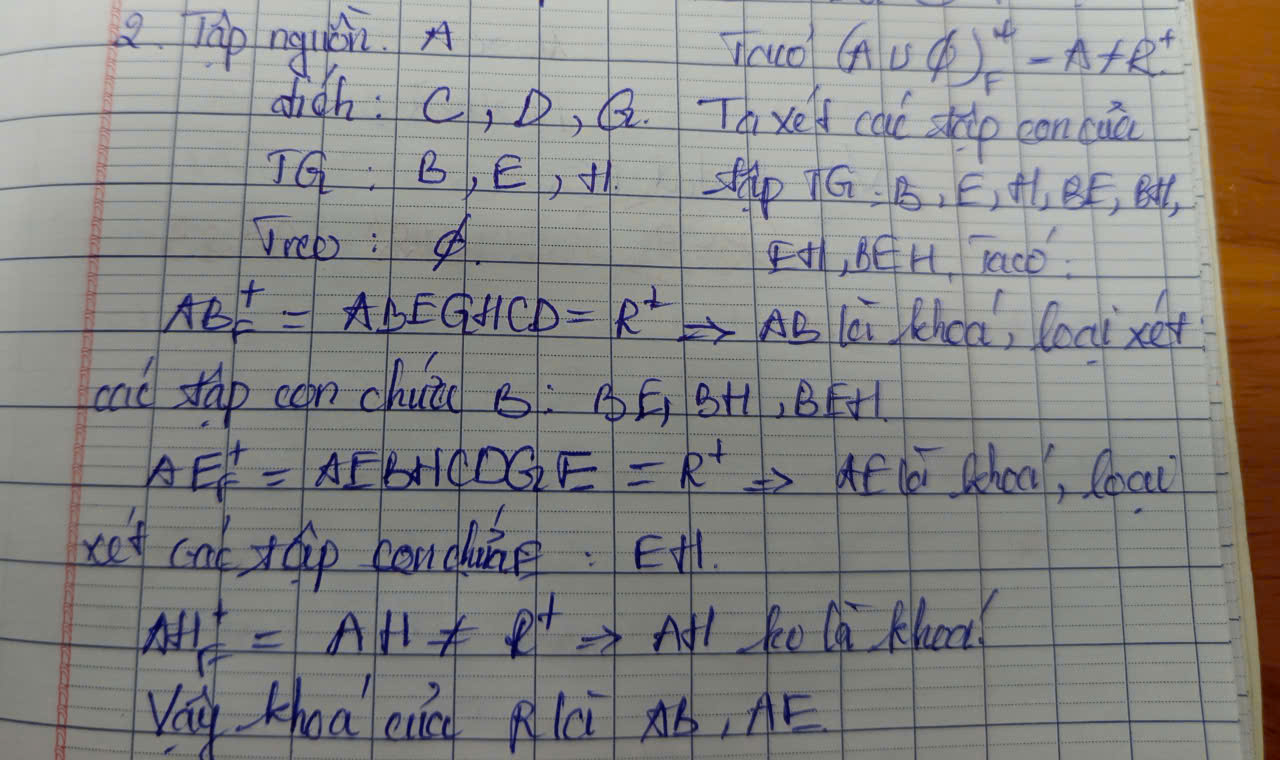 2. Tập nguồn. A
đích: C, D, G.
TG: B, E, H.
Treo: ϕ.
Ta có (A ∪ ϕ)⁺F = A ≠ R⁺.
Ta xét các tập con của
tập TG: B, E, H, BE, BH,
EH, BEH. Ta có:
AB⁺F = ABEGHCD = R⁺ => AB là khoá, loại xét
các tập con chứa B: BE, BH, BEH.
AE⁺F = AEBHCDGE = R⁺ => AE là khoá, loại
xét các tập con chứa E: EH.
AH⁺F = AH ≠ R⁺ => AH ko là khoá!
Vậy khoá của R là AB, AE.